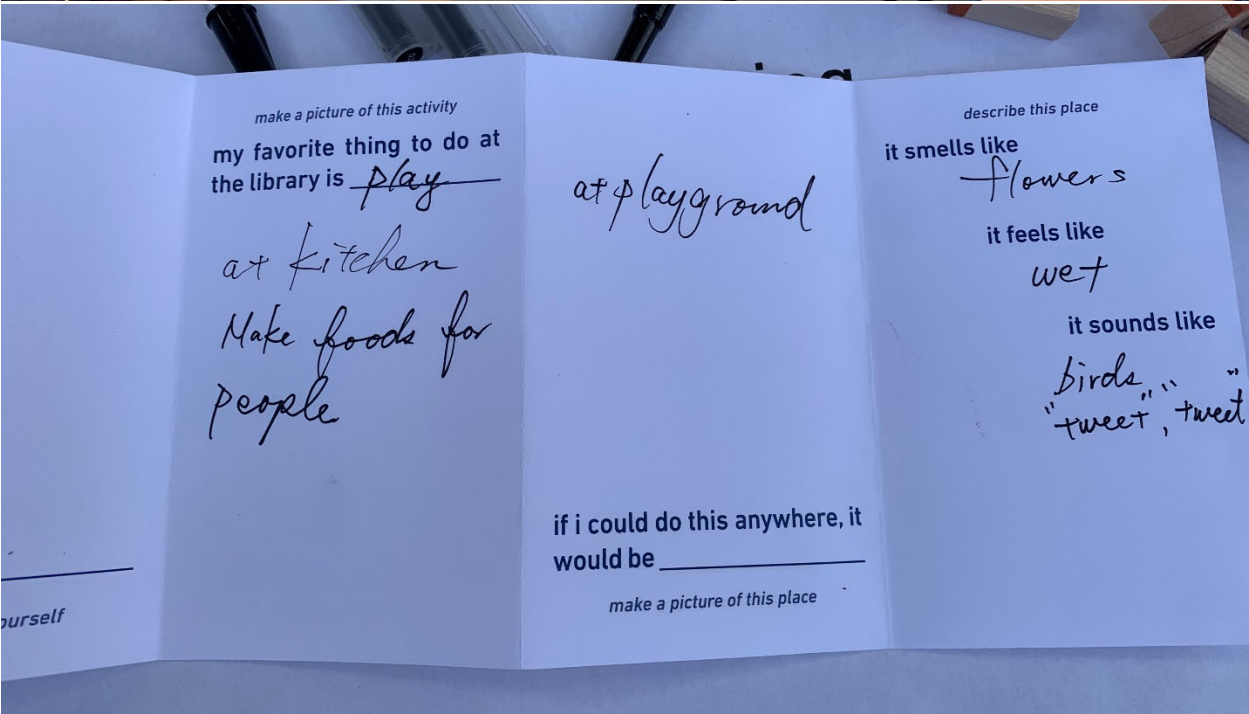 ourself
make a picture of this activity
my favorite thing to do at
the library is play
at kitchen
Make foods for
people
at playground
if i could do this anywhere, it
would be
make a picture of this place
describe this place
it smells like
flowers
it feels like
wet
it sounds like
birds
"tweet", "tweet"